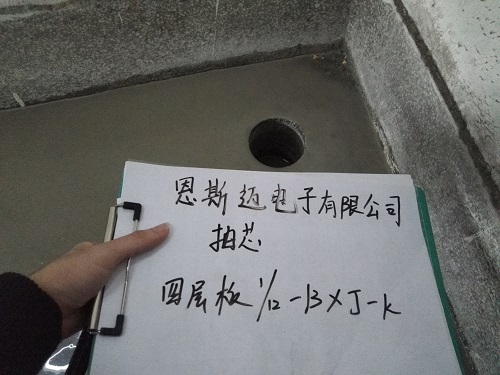 恩斯迈电子有限公司
抽芯
四层板 1/12-13×J-K